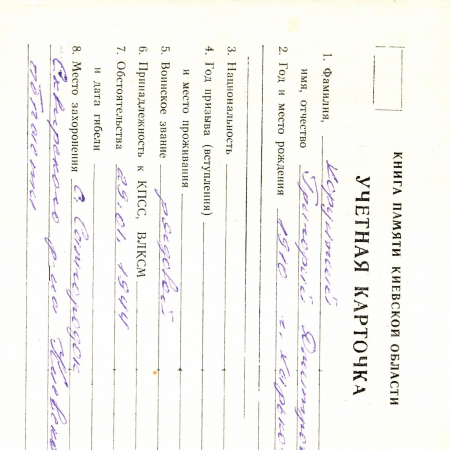 КНИГА ПАМЯТИ КИЕВСКОЙ ОБЛАСТИ
УЧЕТНАЯ КАРТОЧКА
1. Фамилия,
имя, отчество Григорий
2. Год и место рождения 1910
3. Национальность
4. Год призыва (вступления)
и место проживания
5. Воинское звание рядовой
6. Принадлежность к КПСС, ВЛКСМ
7. Обстоятельства 29.01.1944
и дата гибели
8. Место захоронения с.
Сквирского р-на
области